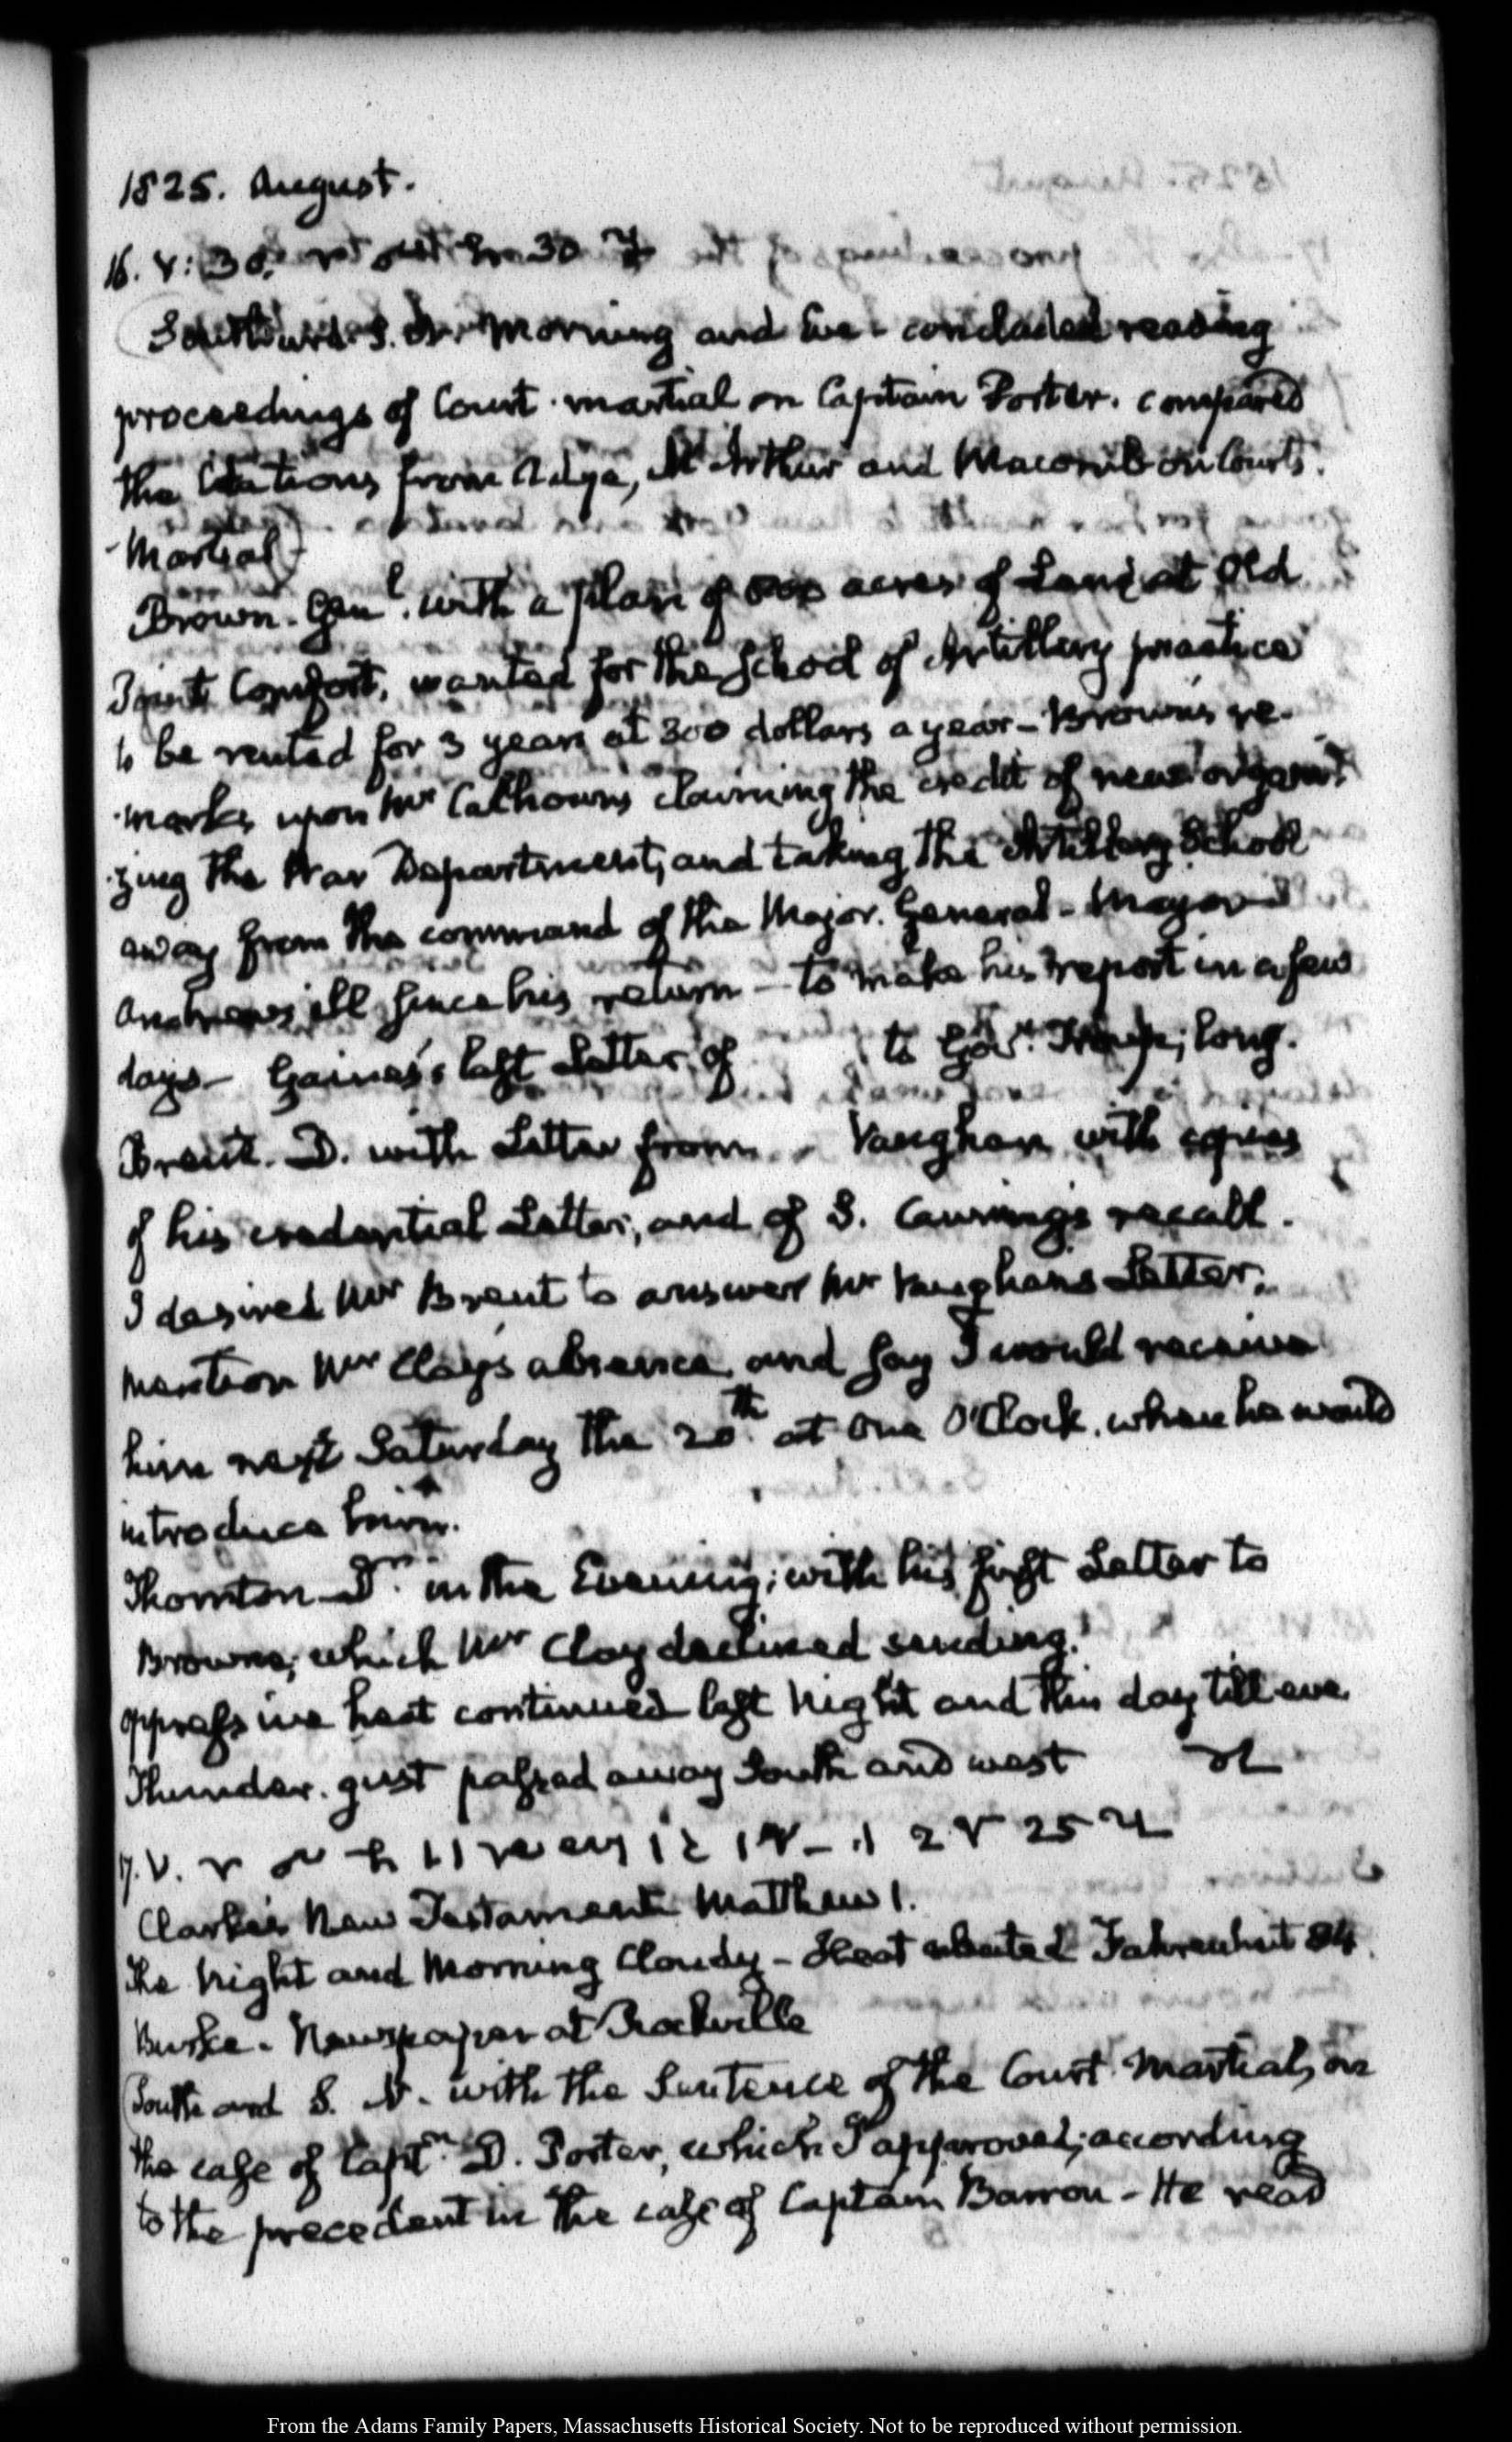 1825. August.
16. V: 30.
Southard. S. Morning and Eve - concluded reading
proceedings of Court-martial on Captain Porter. compared
the Citations from Adye, McArthur and Macomb on Courts
-Martial
Brown. Genl. with a plan of acres of Land at Old
Point Comfort, wanted for the School of Artillery practice
to be rented for 3 years at 300 dollars a year - Brown's re-
-marks upon Mr Calhoun's claiming the credit of new organi
-zing the War Department, and taking the Artillery School
away from the command of the Major. General - Major
Andrews ill since his return - to make his report in a few
days - Gaines's last Letter of to Govr. Troup; long.
Brent. D. with Letter from Vaughan with copies
of his credential Letter, and of S. Canning's recall.
I desired Mr Brent to answer Mr Vaughan's Letter,
mention Mr Clay's absence and say I would receive
him next Saturday the 20th. at One O'Clock. when he would
introduce him.
Thornton Dr. in the Evening; with his first Letter to
Browne, which Mr Clay declined sending.
oppressive heat continued last Night and this day till eve
Thunder. gust passed away South and west
17. V. 25
Clarke's New Testament Matthew 1.
The Night and Morning Cloudy - Heat abated Fahrenheit 84.
Burke. Newspaper at Rockville
Southard S. N. with the Sentence of the Court Martial, on
the case of Captn. D. Porter, which I approved; according
to the precedent in the case of Captain Barron - He read
From the Adams Family Papers, Massachusetts Historical Society. Not to be reproduced without permission.